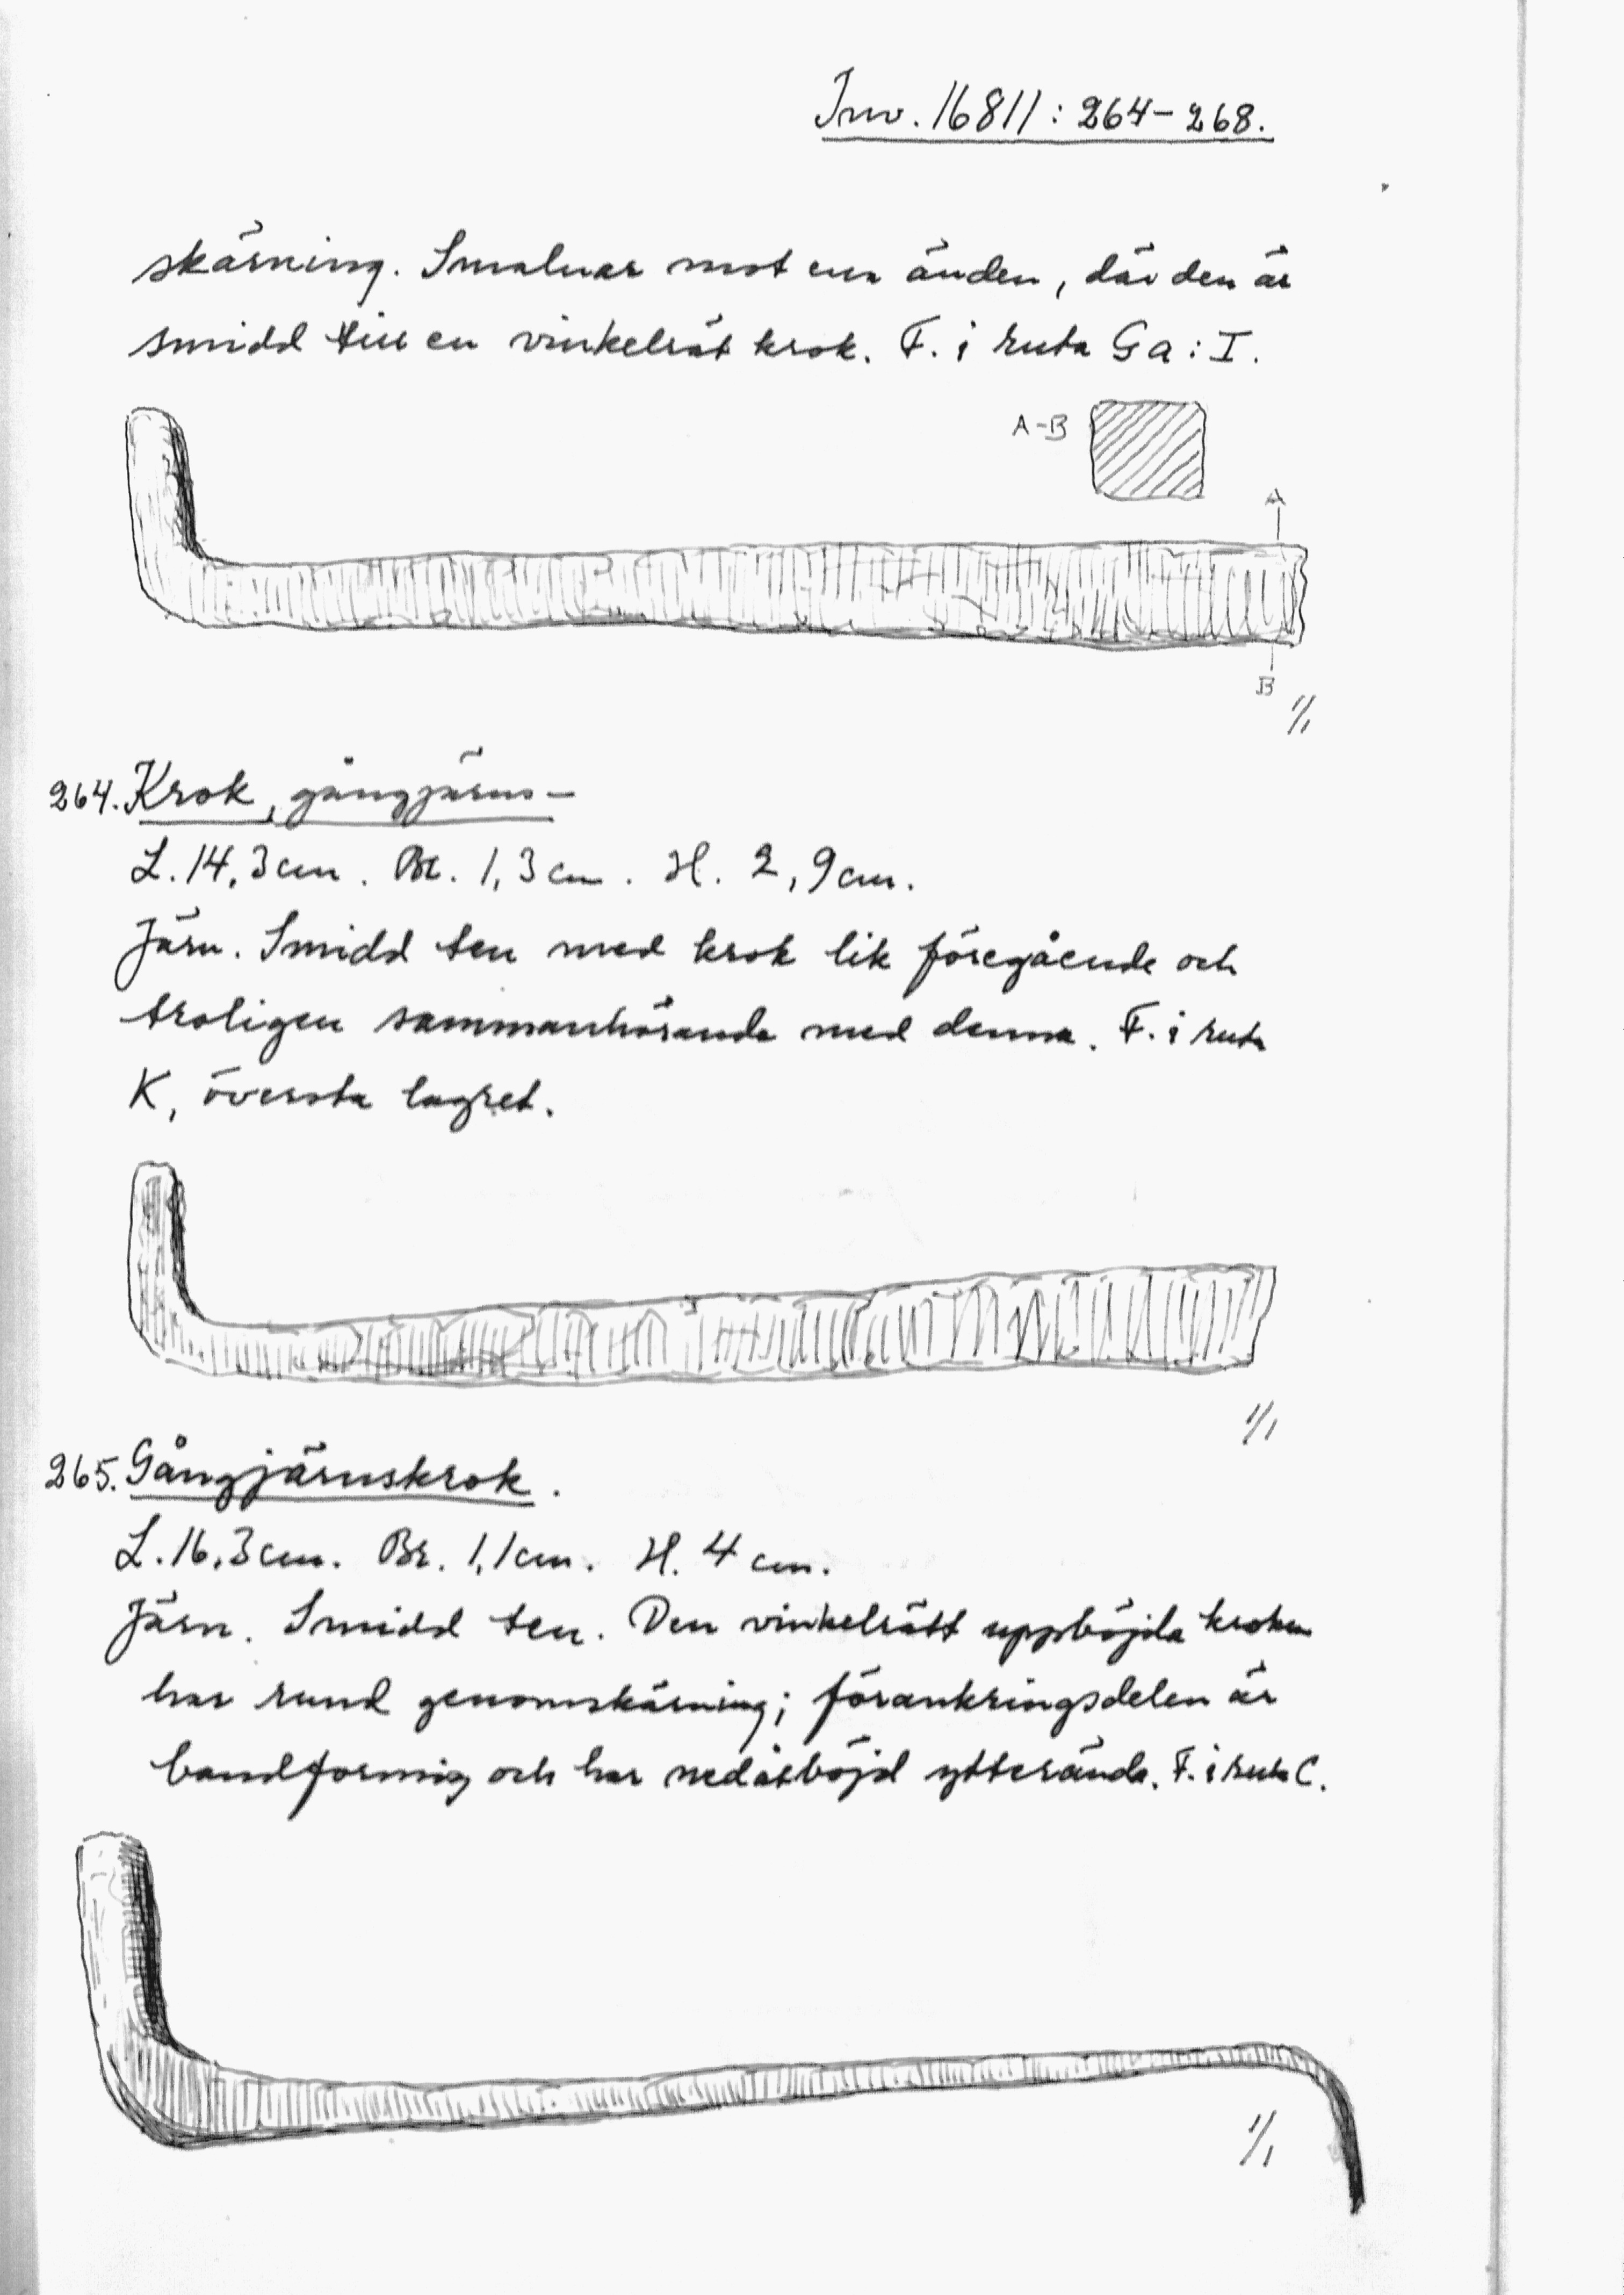 Inv. 16811: 264-268.
skärning. Smalnar mot ena änden, där den är
smidd till en vinkelrät krok. F. i ruta Ga: I.
A-B
A
B
1/1
264. Krok, gångjärns-
L. 14,3 cm. Br. 1,3 cm. H. 2,9 cm.
Järn. Smidd ten med krok lik föregående och
troligen sammanhörande med denna. F. i ruta
K, översta lagret.
1/1
265. Gångjärnskrok.
L. 16,3 cm. Br. 1,1 cm. H. 4 cm.
Järn. Smidd ten. Den vinkelrätt uppböjda kroken
har rund genomskärning; förankringsdelen är
bandformig och har nedåtböjd ytterända. F. i ruta C.
1/1